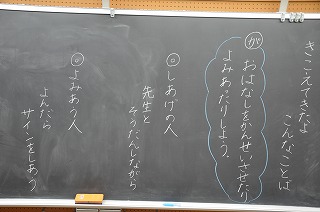 きこえてきたよ
こんなことば
が
おはなしをかんせいさせたり
よみあったりしよう.
◎しあげの人
先生と
そうだんしながら
◎よみあう人
よんだら
サインをしあう